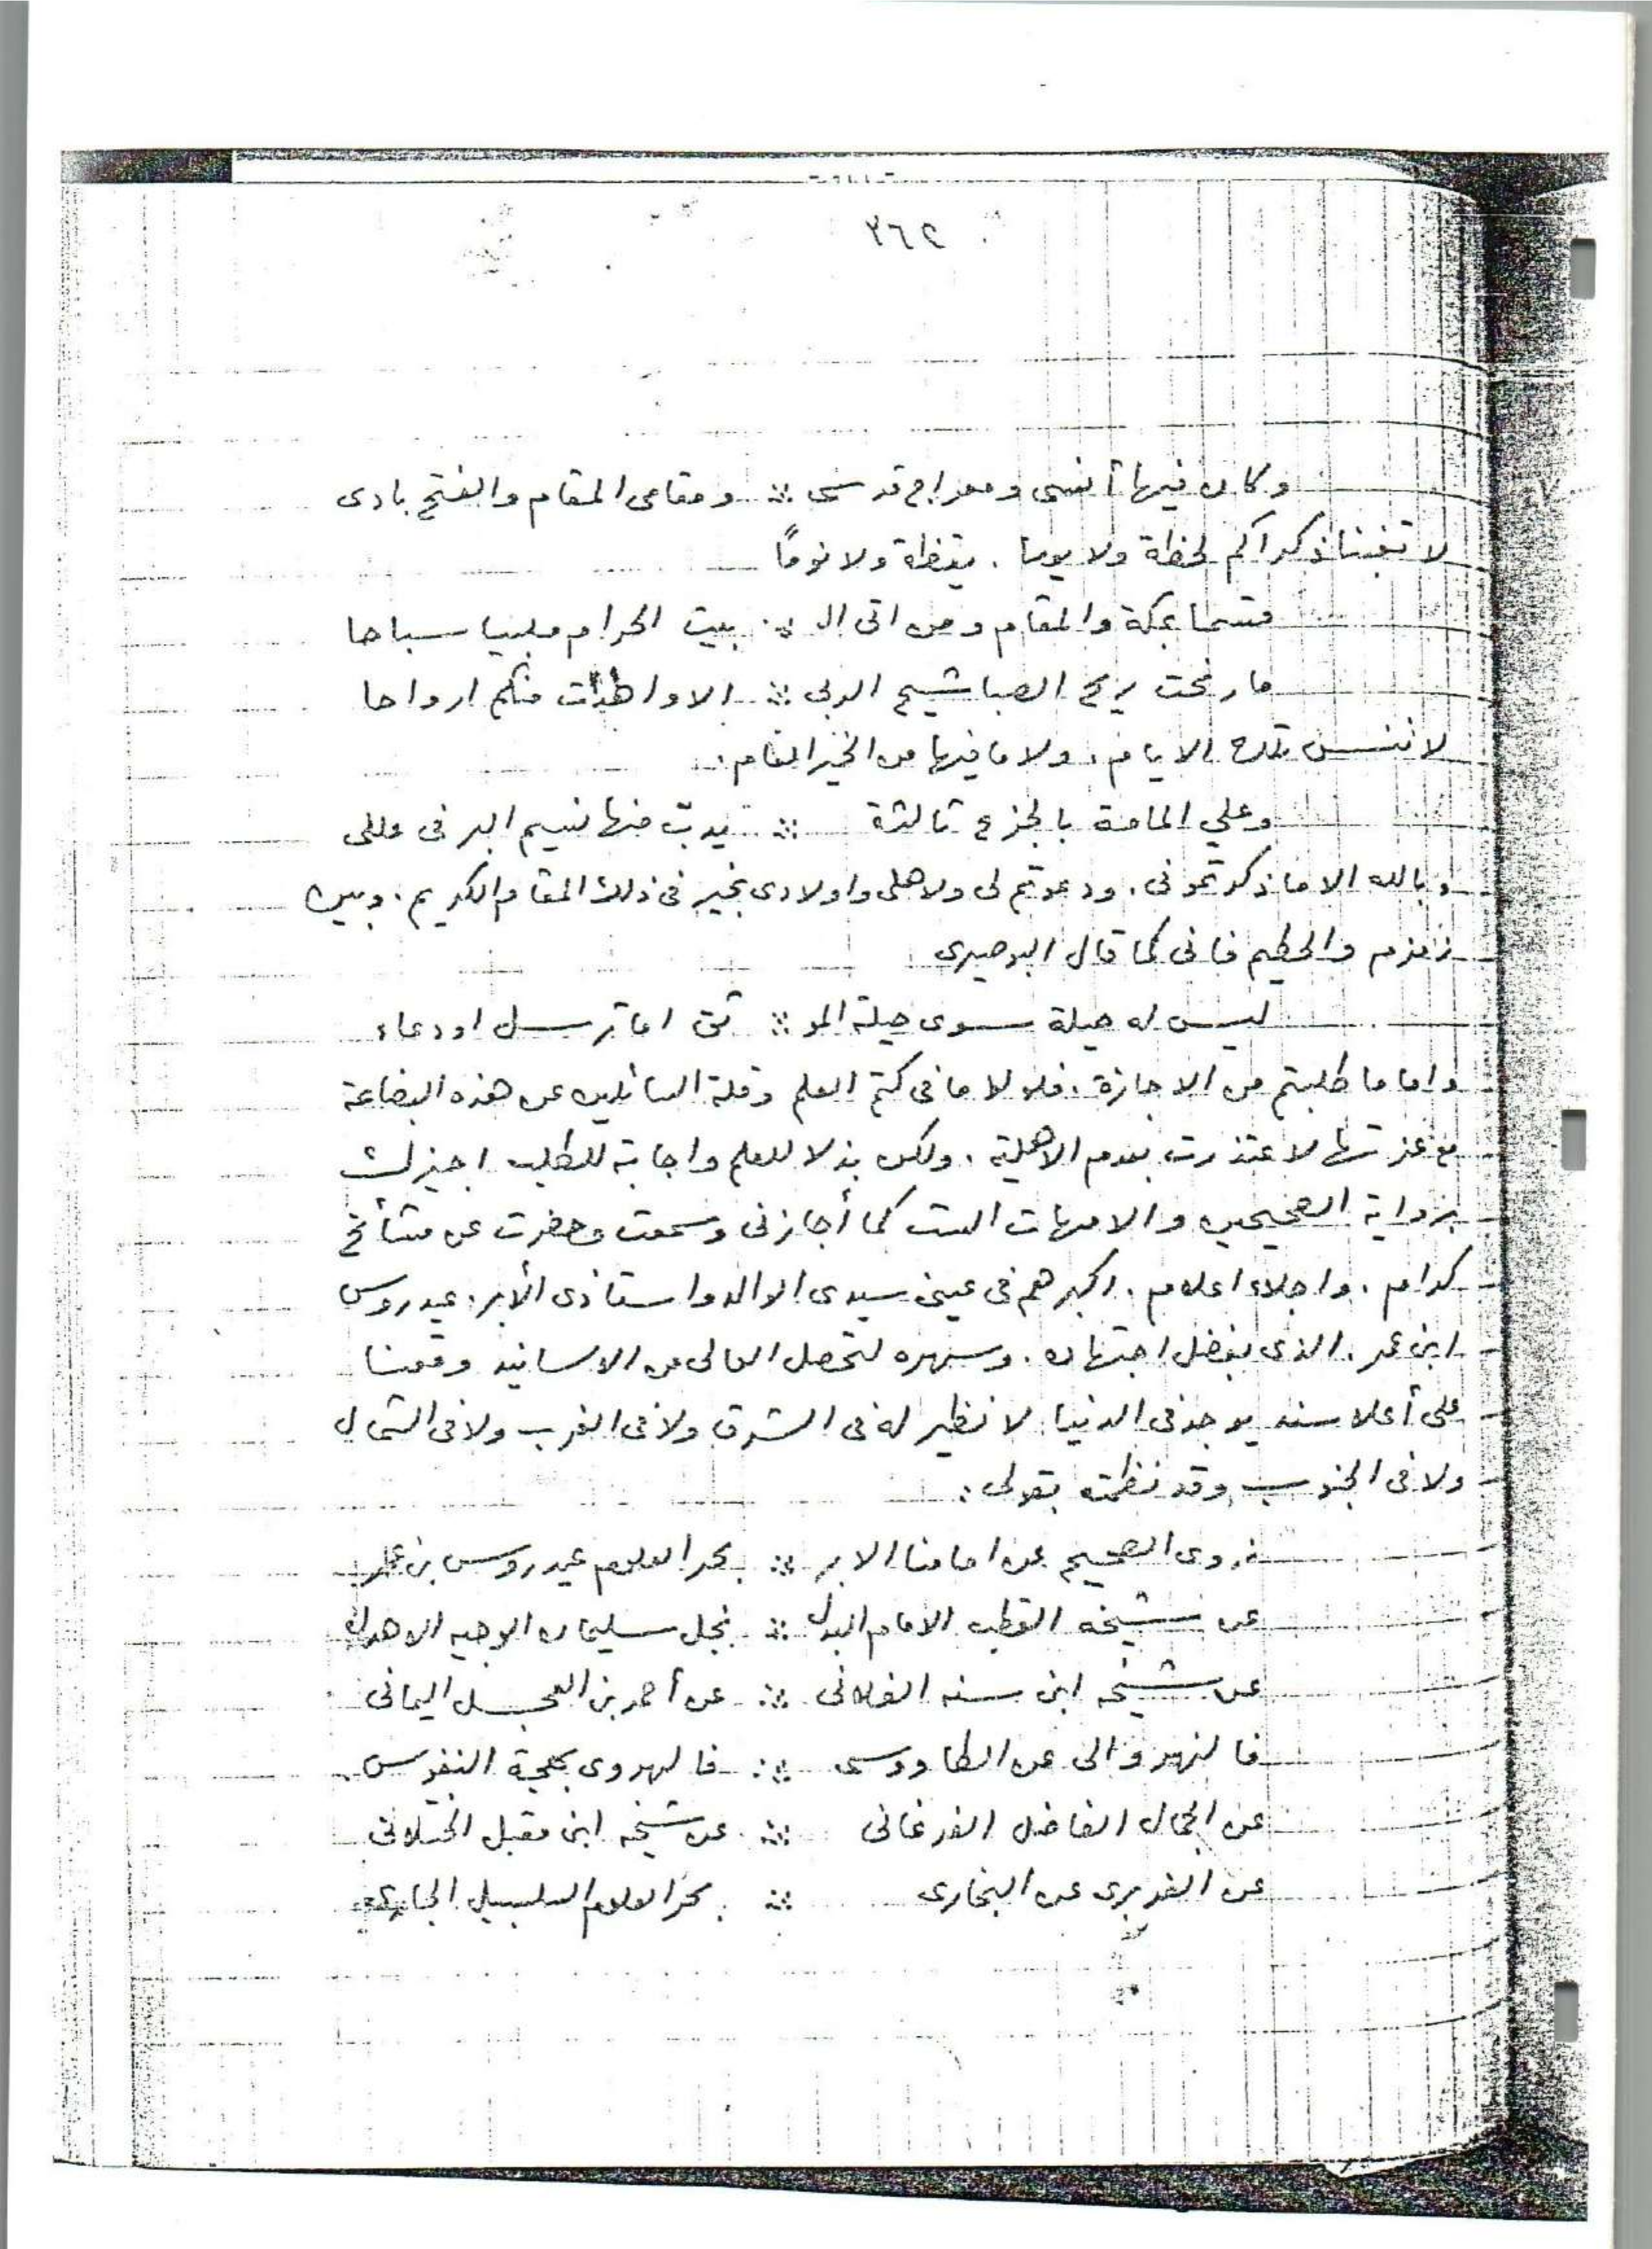 ٣٦٢
وكان فيها أنسى ومعراج قدسى ∴ ومقامى المقام والفتح بادى
لا تغبنا ذكراكم لحظة ولا يوما . يقظة ولا نومًا
قسما بمكة والمقام ومن اتى ال ∴ بيت الحرام ملبيا سباحا
ما رنحت ريح الصبا شيح الربى ∴ الا واهدت منكم ارواحا
لا ننسى تلك الايام . ولا ما فيها من الخير التام .
وعلي المامة بالجزع ثالثة ∴ يدبّ منها نسيم البر فى عللى
وبالله الا ما ذكرتمونى . ودعوتم لى ولاهلى واولادى بخير فى ذلك المقام الكريم . وبين
زمزم والحطيم فانى كما قال البوصيرى
ليس له حيلة سوى حيلة المو ∴ ثق اما توسل او دعاء
واما ما طلبتم من الاجازة . فلولا ما فى كتم العلم وقلة السائلين عن هذه البضاعة
مع عزتها لاعتذرت بعدم الاهلية . ولكن بذلا للعلم واجابة للطلب اجيزك
برواية الصحيحين والامهات الست كما أجازنى وسمعت وحضرت عن مشائخ
كرام . واجلاء اعلام . اكبرهم فى عينى سيدى الوالد واستاذى الأبر . عيدروس
ابن عمر . الذى بفضل اجتهاده . وسهره لتحصل العالى من الاسانيد وقعنا
على أعلا سند يوجد فى الدنيا لا نظير له فى الشرق ولا فى الغرب ولا فى الشمال
ولا فى الجنوب وقد نظمته بقولى :
نروى الصحيح عن امامنا الابر ∴ بحر العلوم عيدروس بن عمر
عن شيخه القطب الامام البدل ∴ نجل سليمان الوجيه الاهدل
عن شيخه ابن سنه الفلانى ∴ عن أحمد بن العجل اليمانى
فالنهروالى عن الطاووسى ∴ فالهروى بهجة النفوس
عن الجمال الفاضل الفرغانى ∴ عن شيخه ابن مقبل الختلانى
عن الفربرى عن البخارى ∴ بحر العلوم السلسبيل الجارى